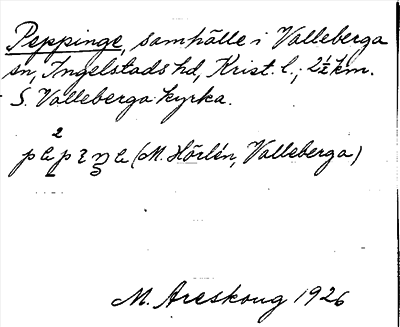 Peppinge, samhälle i Valleberga
sn, Ingelstads hd, Krist. l., 2½ km.
S. Valleberga kyrka.
2
(M. Hörlén, Valleberga)
M. Areskoug 1926